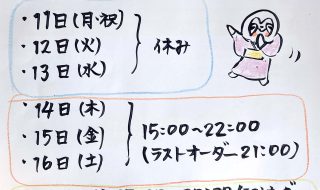 ・11日(月・祝)
・12日(火)
・13日(水)
休み
・14日(木)
・15日(金)
・16日(土)
15:00~22:00
(ラストオーダー21:00)